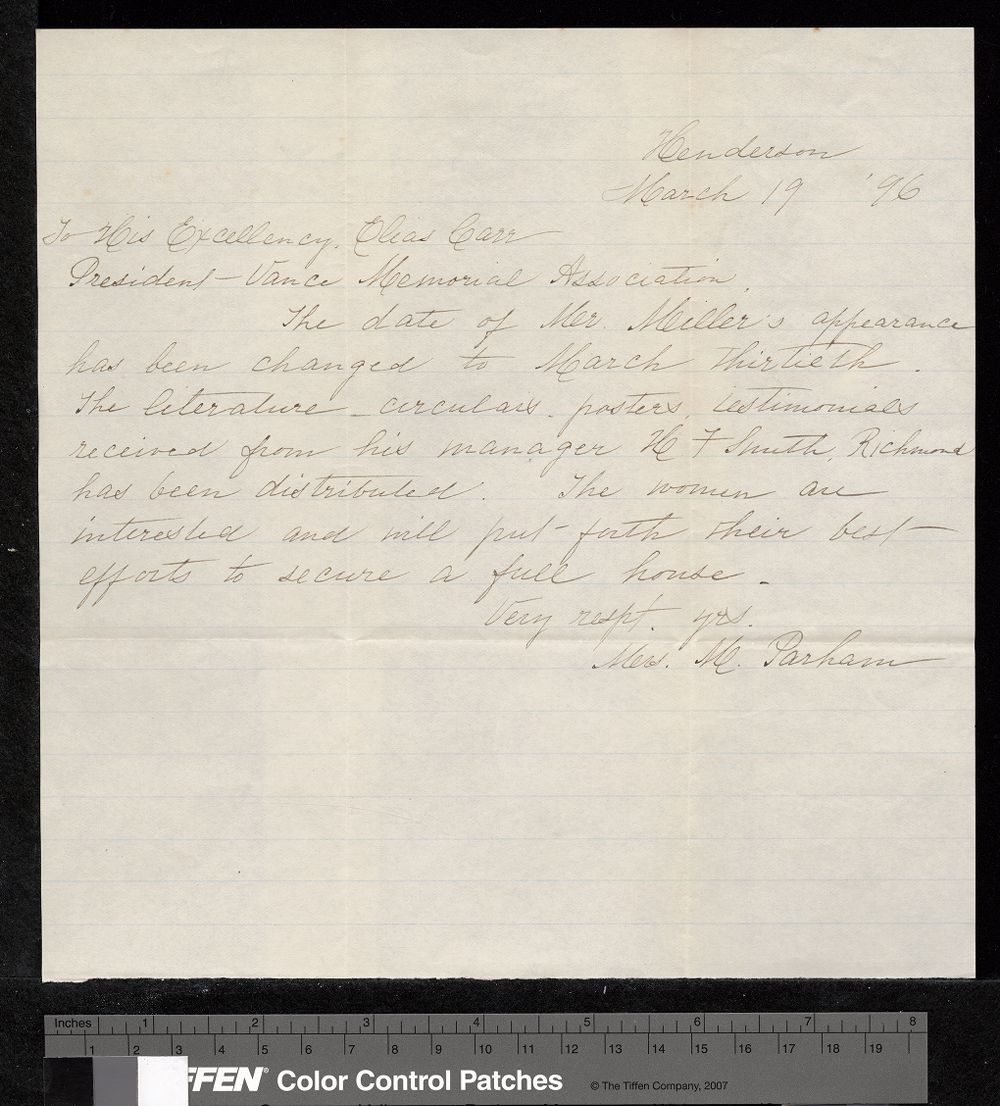 Henderson
March 19 '96
To His Excellency, Elias Carr
President - Vance Memorial Association,
The date of Mr. Miller's appearance
has been changed to March thirtieth.
The literature - circulars, posters, testimonials
received from his manager H F Smith, Richmond
has been distributed. The women are
interested and will put forth their best
efforts to secure a full house -
Very respt. yrs.
Mrs. M. Parham
Inches 1 2 3 4 5 6 7 8
1 2 3 4 5 6 7 8 9 10 11 12 13 14 15 16 17 18 19
FFEN® Color Control Patches © The Tiffen Company, 2007